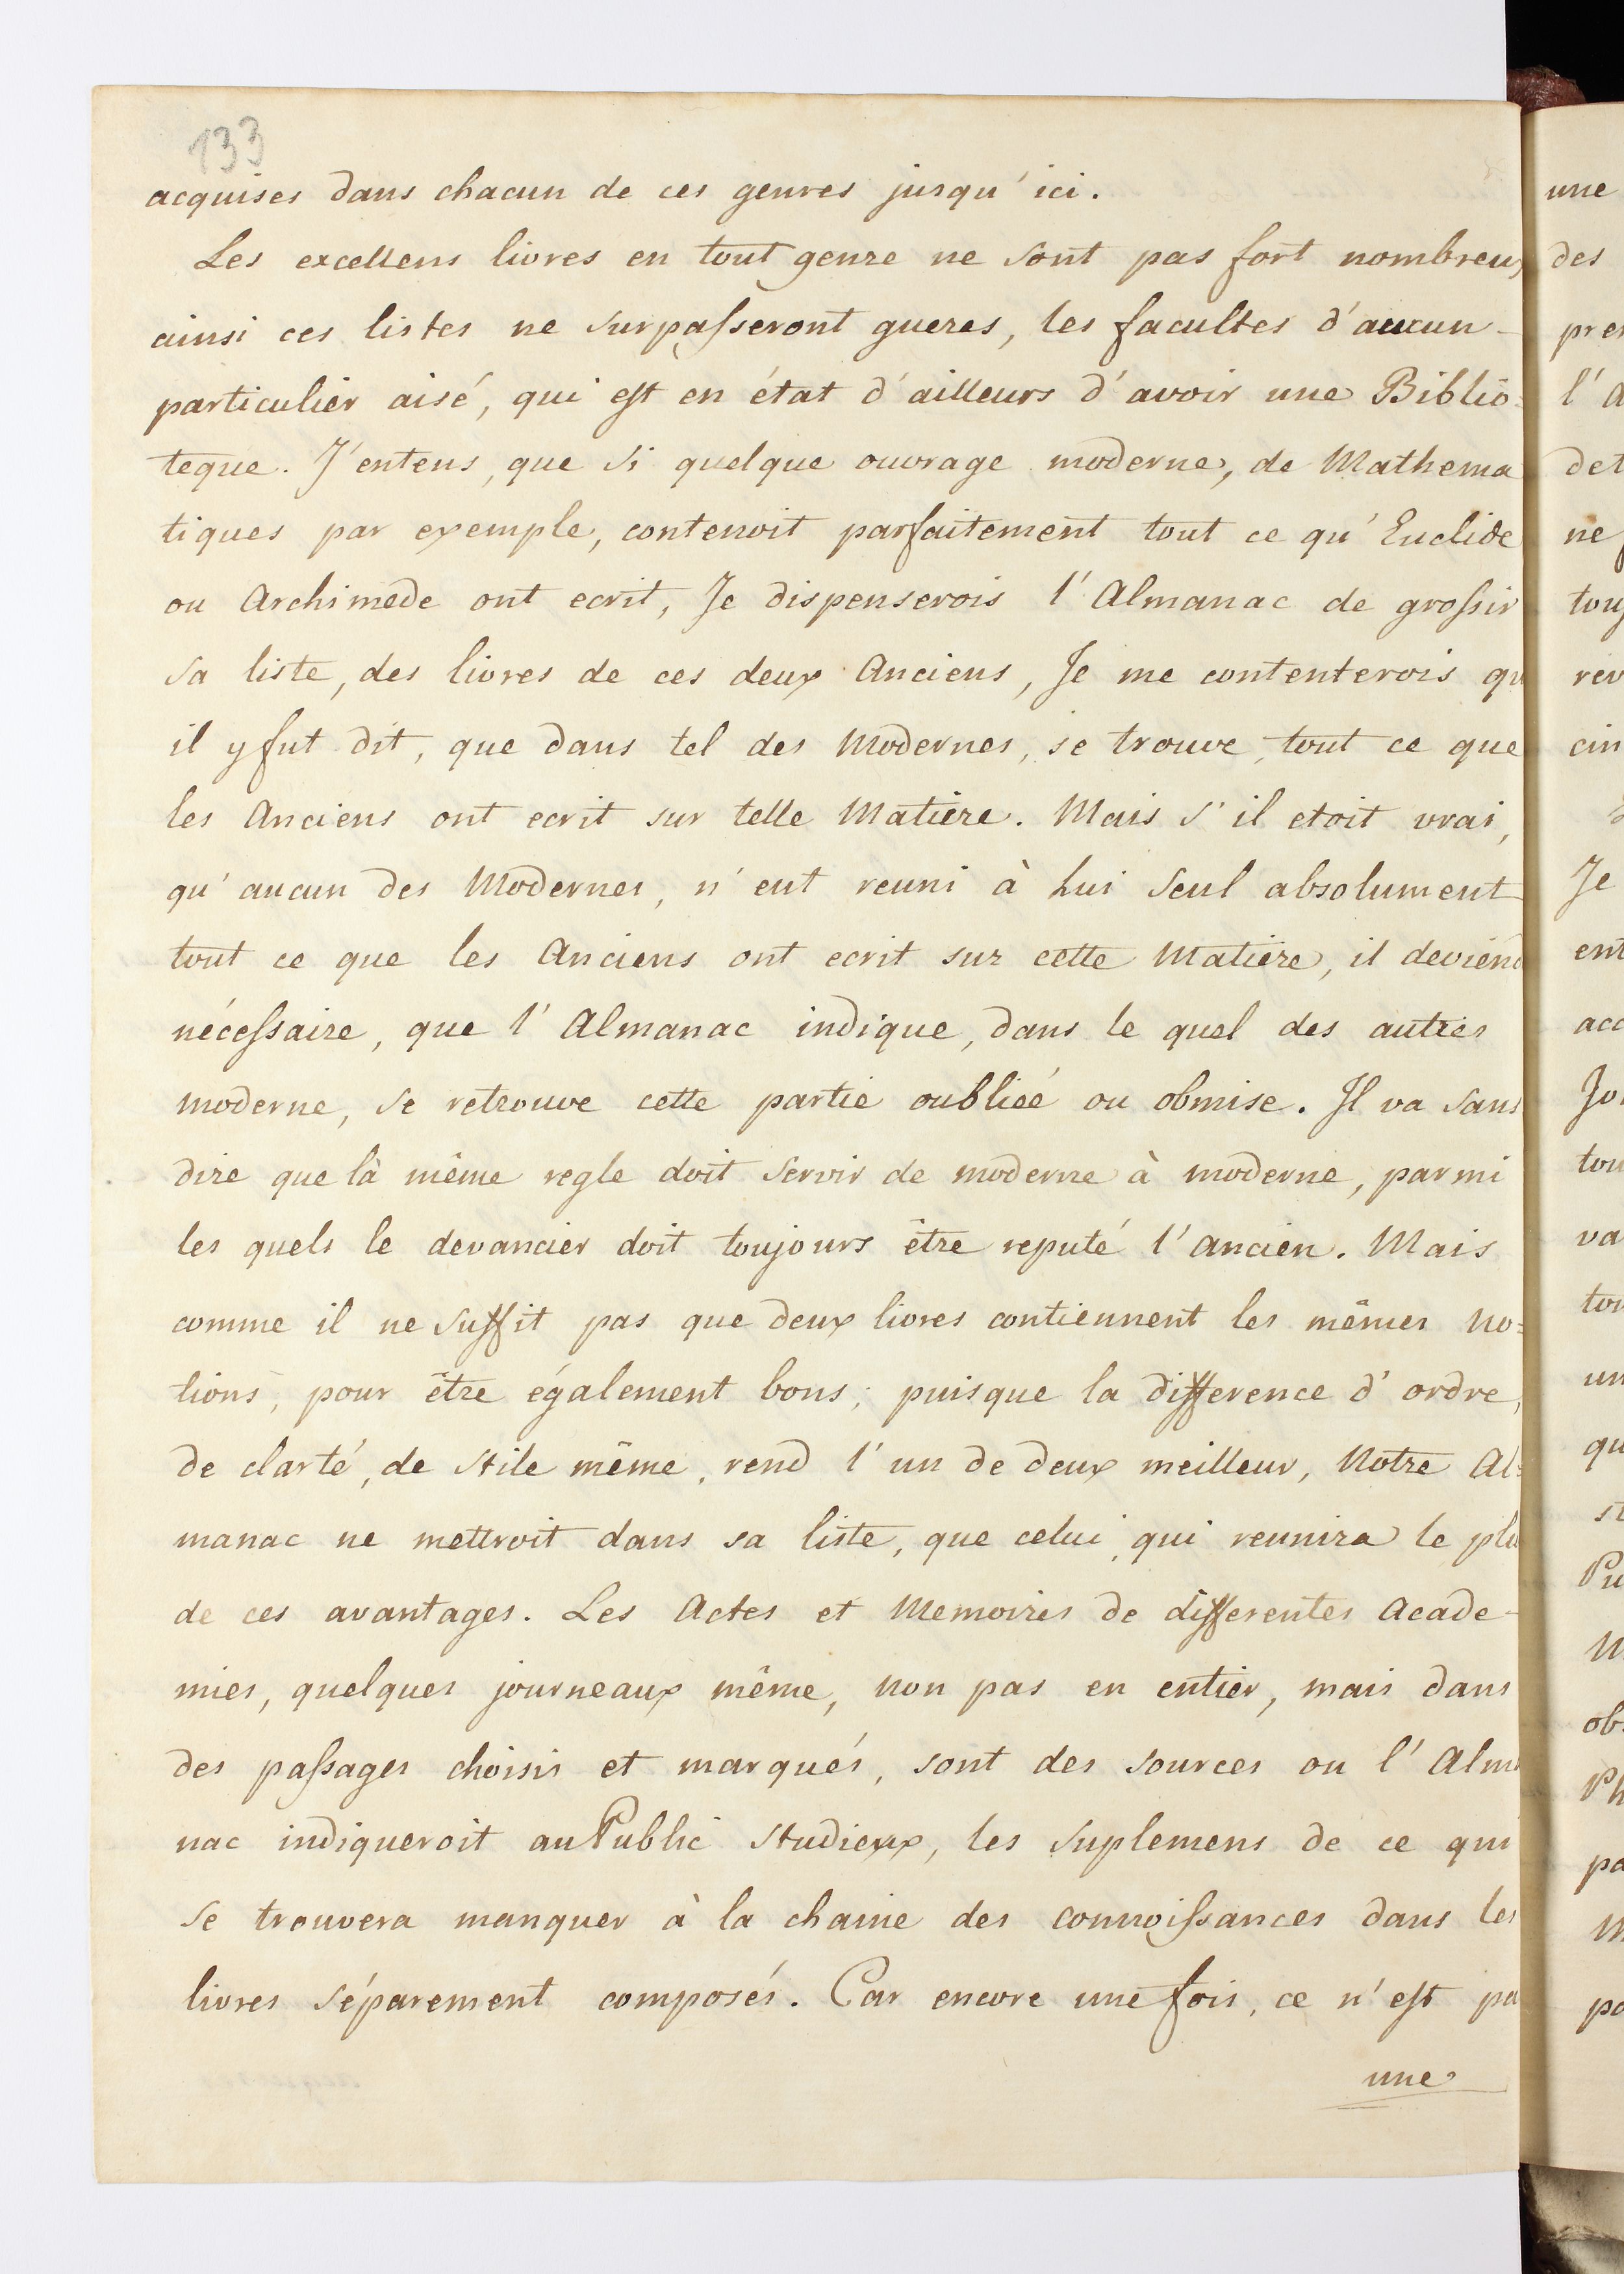 133
acquises dans chacun de ces genres jusqu'ici.
Les excellens livres en tout genre ne sont pas fort nombreux
ainsi ces listes ne surpasseront gueres, les facultes d'aucun
particulier aisé, qui est en état d'ailleurs d'avoir une Biblio=
teque. J'entens, que si quelque ouvrage moderne, de Mathema
tiques par exemple, contenoit parfaitement tout ce qu'Euclide
ou Archimede ont ecrit, Je dispenserois l'Almanac de grossir
sa liste, des livres de ces deux Anciens, Je me contenterois qu
il y fut dit, que dans tel des Modernes, se trouve, tout ce que
les Anciens ont ecrit sur telle Matiere. Mais s'il etoit vrai,
qu'aucun des Modernes, n'eut reuni à lui seul absolument
tout ce que les Anciens ont ecrit sur cette Matiere, il deviend
nécessaire, que l'Almanac indique, dans le quel des autres
moderne, se retrouve cette partie oubliée ou obmise. Il va sans
dire que là même regle doit servir de moderne à moderne, parmi
les quels le devancier doit toujours être reputé l'ancien. Mais
comme il ne suffit pas que deux livres contiennent les mêmes no=
tions, pour être également bons; puisque la difference d'ordre,
de clarté, de stile même, rend l'un de deux meilleur, Notre Al=
manac ne mettroit dans sa liste, que celui, qui reunira le plu
de ces avantages. Les Actes et Memoires de differentes Acade-
mies, quelques journeaux même, non pas en entier, mais dans
des passages choisis et marqués, sont des sources ou l'Alma
nac indiqueroit au Public studieux, les suplemens de ce qui
se trouvera manquer à la chaine des connoissances dans les
livres séparement composés. Car encore une fois, ce n'est pa
une
une
des
pre
l'a
det
ne
tou
rev
cin
Je
ent
acc
Jo
tou
va
tou
un
qu
st
Pu
M
ob
Ph
pa
M
pa